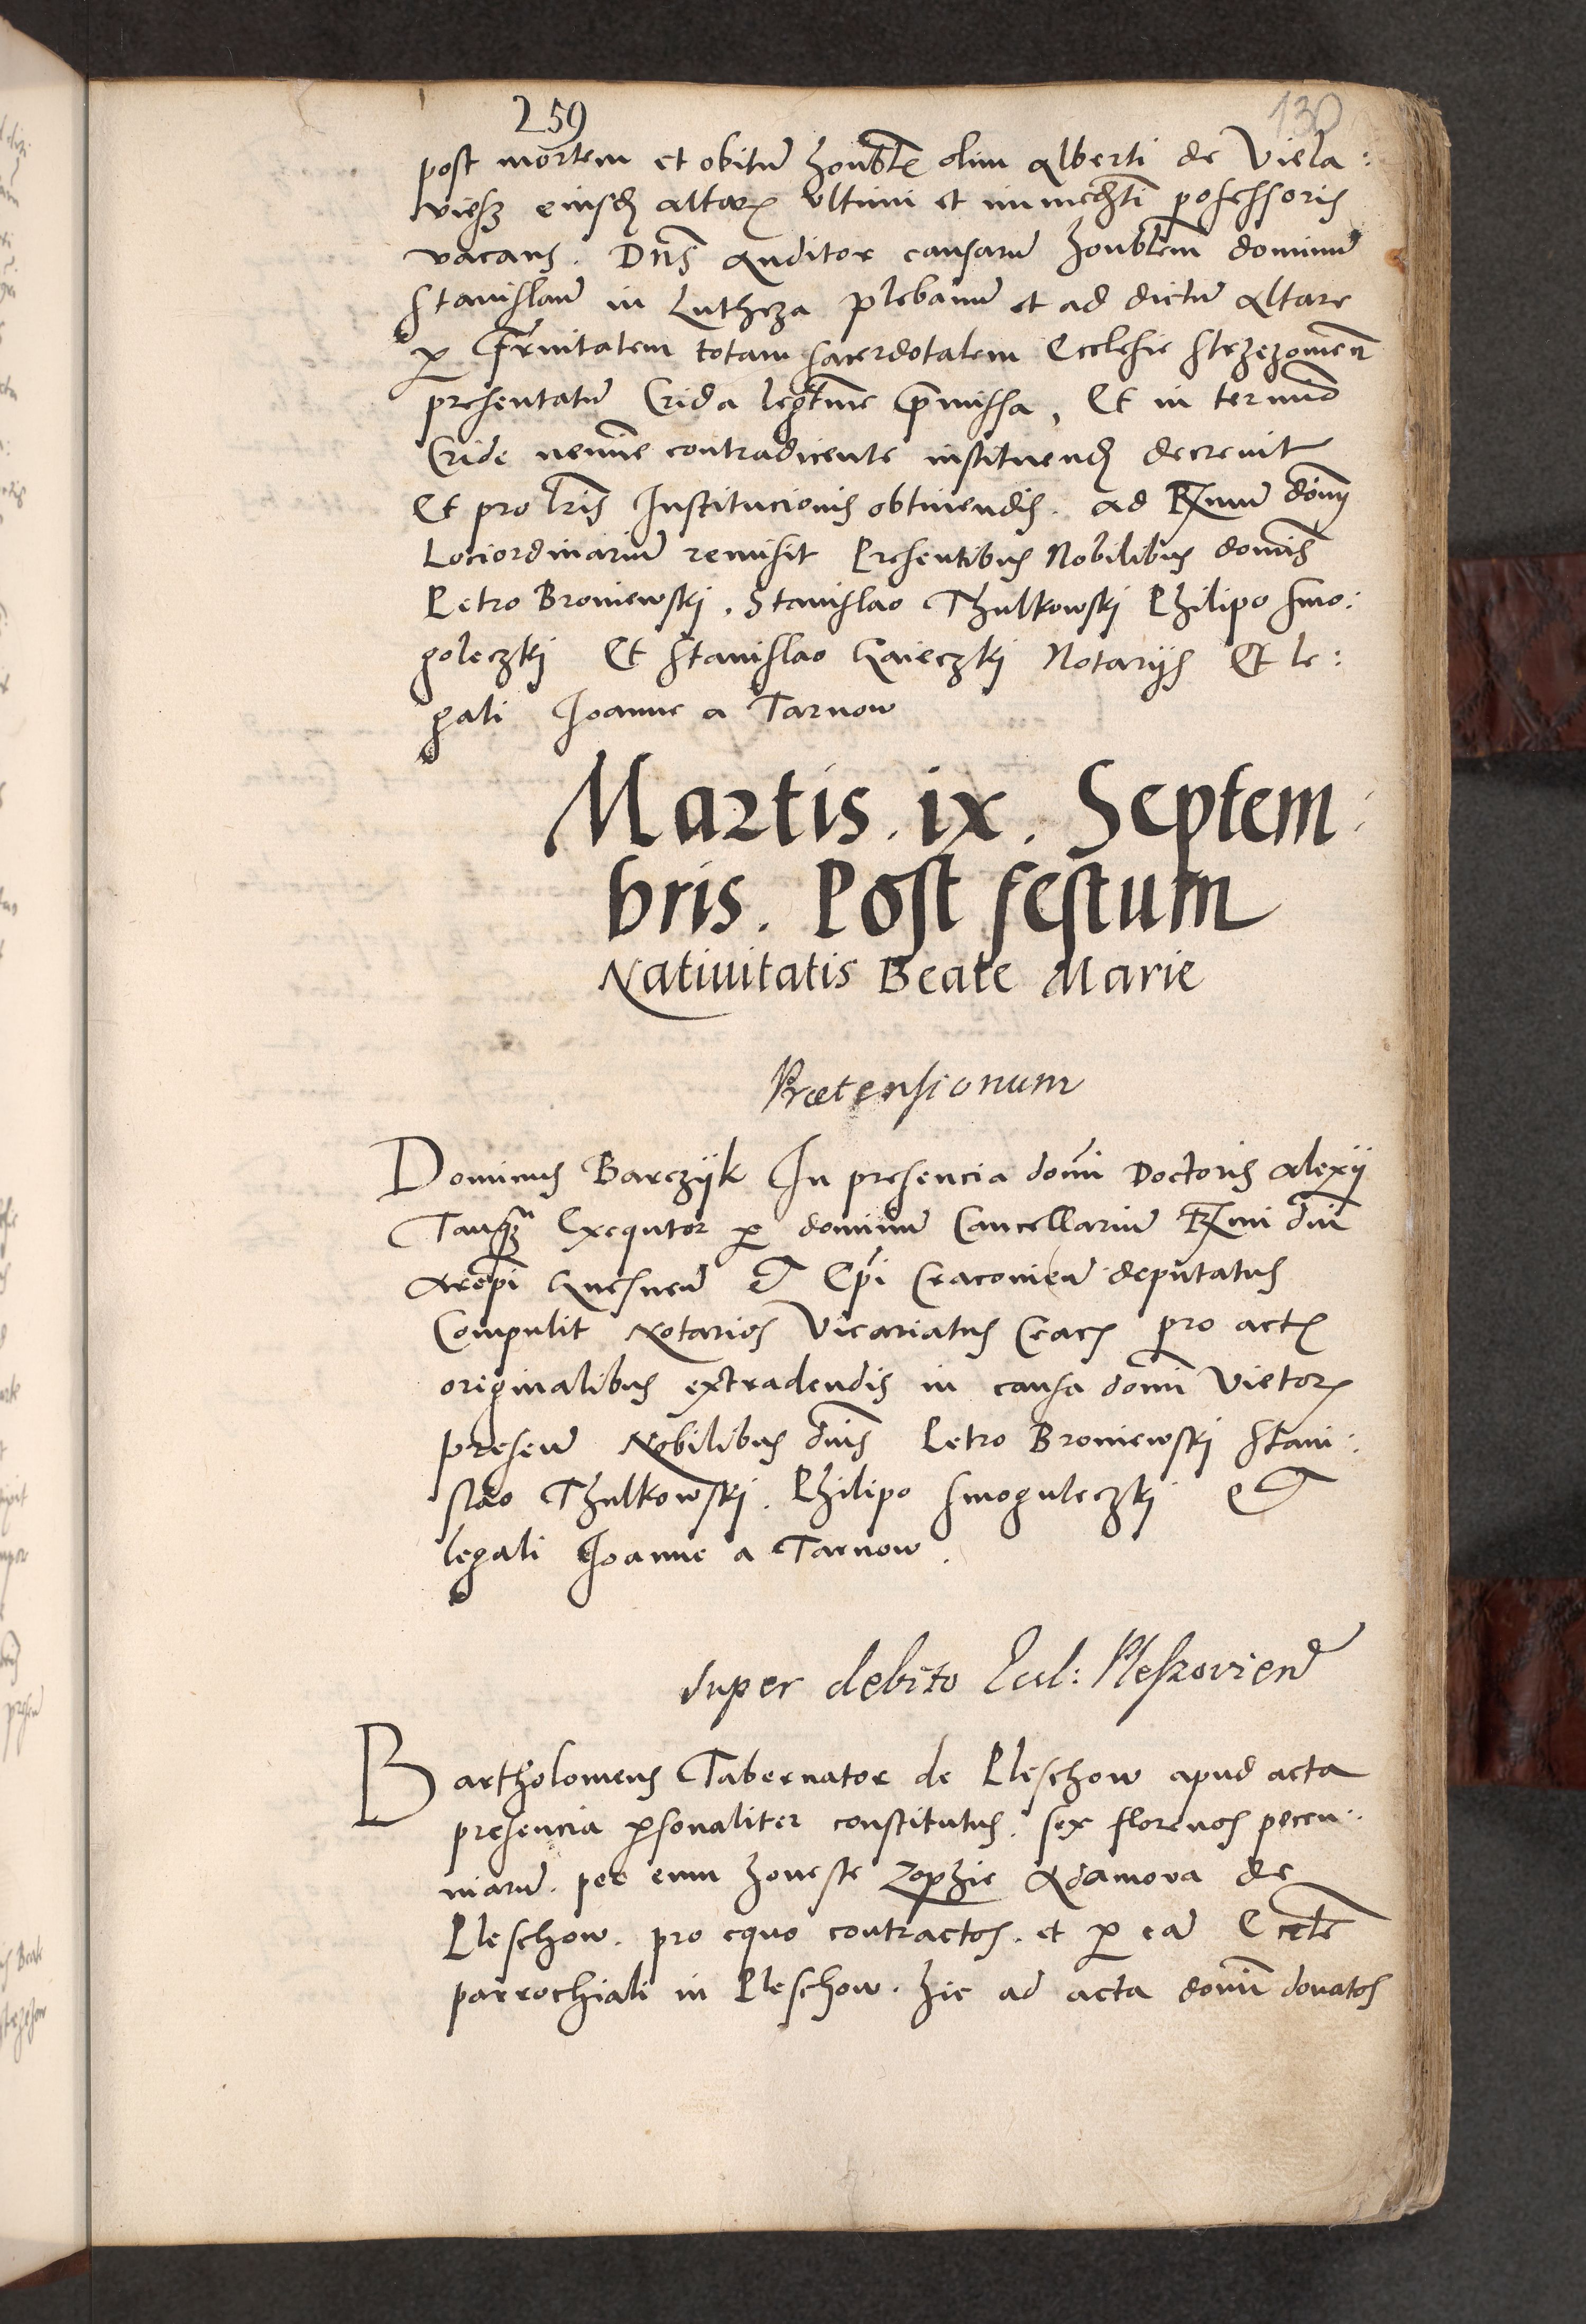 259
130
post mortem et obitu̅ honblẽ olim Alberti de Viela:
viesz eiusd̅ altar̃ ultimi et immed̅ti possessoris
vacans. Dn̅s Auditor causaru̅ honblem̅ dominu̅
Stanislau̅ in Luthcza plebanu̅ et ad dictu̅ Altare
ꝑ fr̅nitatem totam sacerdotalem Ecclesie Strzezomen̅
presentatu̅ Crida legt̅ime p̅missa, Et in termino̅
Cride nemi̅e contradicente instituend̅ decrevit
Et pro lr̅is Institucionis obtinendis. ad R̅xmum dom̅
Lociordinariu̅ remisit Presentibus Nobilibus domi̅s
Petro Broniewskj. Stanislao Thulkowskj Philipo Smo:
goleczkj Et Stanislao Gaieczkj Notarijs Et le:
gali Joanne a Tarnow
Martis. ix. Septem:
bris. Post festum
Nativitatis Beate Marie
Prætensionum
Dominus Barczijk In presencia domi̅ Doctoris Alexij
Tanq̅ Exequtor ꝑ dominu̅ Cancellariu̅ R̅xmi dn̅i
Arep̅i Gnesnen̅ et Ep̅i Cracovien̅ deputatus
Compulit Notarios Vicariatus Crac̃ pro act̃
originalibus extradendis in causa domi̅ Vietor̃
presen̅ Nobilibus dn̅is Petro Broniewskj Stani:
slao Thulkowskj. Philipo Smoguleczkj et
legali Joanne a Tarnow.
Super debito Eccl: Pleszovien̅
Bartholomeus Tabernator de Pleschow apud acta
presencia ꝑsonaliter constitutus. sex florenos pecun:
niaru̅. per eum honeste Zophie Adamova de
Pleschow. pro equo contractos. et ꝑ ea̅ Eccl̅e
parrochiali in Pleschow. hic ad acta domi̅ donatos